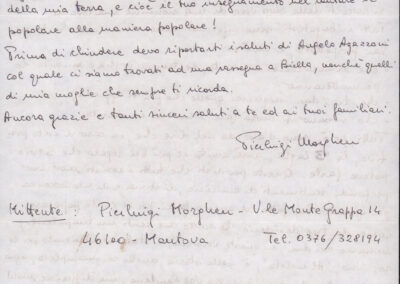 della mia terra, e cioè il tuo insegnamento nel cantare il
popolare alla maniera popolare!
Prima di chiudere devo riportarti i saluti di Angelo Agazzani
col quale ci siamo trovati ad una rassegna a Biella, nonché quelli
di mia moglie che sempre ti ricorda.
Ancora grazie e tanti sinceri saluti a te ed ai tuoi familiari.
Pierluigi Morghen
Mittente : Pierluigi Morghen - V.le Monte Grappa 14
46100 - Mantova Tel. 0376/328194